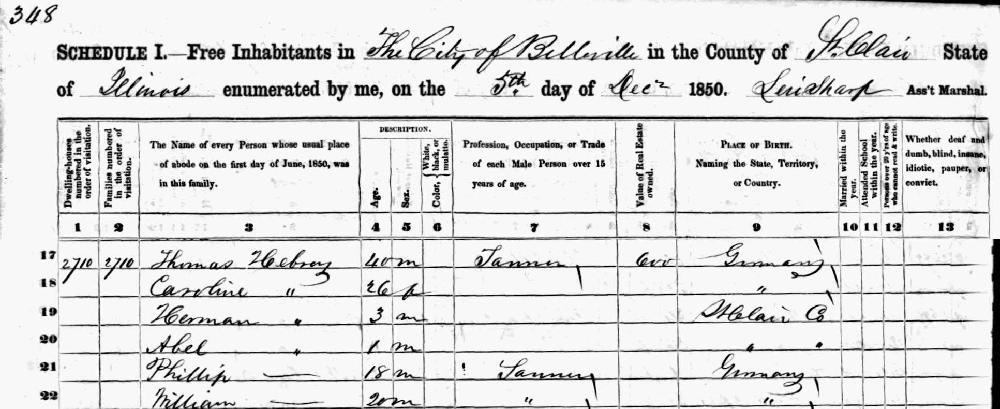 348
SCHEDULE I.—Free Inhabitants in The City of Belleville in the County of St. Clair State
of Illinois enumerated by me, on the 5th day of Decr 1850. Levi Sharp Ass't Marshal.
Dwelling-houses numbered in the order of visitation.
Families numbered in the order of visitation.
The Name of every Person whose usual place of abode on the first day of June, 1850, was in this family.
DESCRIPTION.
Age.
Sex.
Color, White, black, or mulatto.
Profession, Occupation, or Trade of each Male Person over 15 years of age.
Value of Real Estate owned.
PLACE OF BIRTH. Naming the State, Territory, or Country.
Married within the year.
Attended School within the year.
Persons over 20 y'rs of age who cannot read & write.
Whether deaf and dumb, blind, insane, idiotic, pauper, or convict.
1 2 3 4 5 6 7 8 9 10 11 12 13
17 2710 2710 Thomas 40 m Tanner 600 Germany
18 Caroline " 26 f "
19 Herman " 3 m St Clair Co
20 Abel " 1 m " "
21 Phillip — 18 m Tanner Germany
22 William — 20 m " "